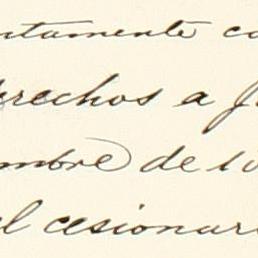 ntamente co
erechos a J
mbre de lo
el cesionar